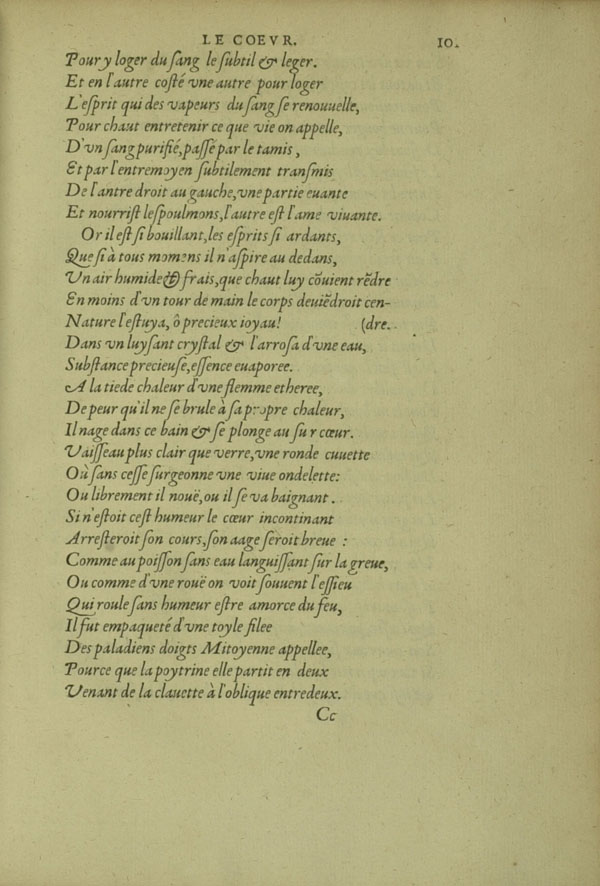 LE COEVR. 10.
Pour y loger du ſang le ſubtil & leger.
Et en l'autre coſté vne autre pour loger
L'eſprit qui des vapeurs du ſang ſe renouuelle,
Pour chaut entretenir ce que vie on appelle,
D'vn ſang purifié, paſſé par le tamis,
Et par l'entremoyen ſubtilement tranſmis
De l'antre droit au gauche, vne partie euante
Et nourriſt les poulmons, l'autre eſt l'ame viuante.
Or il eſt ſi bouillant, les eſprits ſi ardants,
Que ſi à tous momens il n'aſpire au dedans,
Vn air humide & frais, que chaut luy cõuient rẽdre
En moins d'vn tour de main le corps deuiẽdroit cen-
Nature l'eſtuya, ô precieux ioyau! (dre.
Dans vn luyſant cryſtal & l'arroſa d'vne eau,
Subſtance precieuſe, eſſence euaporee.
A la tiede chaleur d'vne flemme etheree,
De peur qu'il ne ſe brule à ſa propre chaleur,
Il nage dans ce bain & ſe plonge au ſur cœur.
Vaiſſeau plus clair que verre, vne ronde cuuette
Où ſans ceſſe ſurgeonne vne viue ondelette:
Ou librement il nouë, ou il ſe va baignant.
Si n'eſtoit ceſt humeur le cœur incontinant
Arreſteroit ſon cours, ſon aage ſeroit breue :
Comme au poiſſon ſans eau languiſſant ſur la greue,
Ou comme d'vne rouë on voit ſouuent l'eſſieu
Qui roule ſans humeur eſtre amorce du feu,
Il fut empaqueté d'vne toyle filee
Des paladiens doigts Mitoyenne appellee,
Pource que la poytrine elle partit en deux
Venant de la clauette à l'oblique entredeux.
Cc